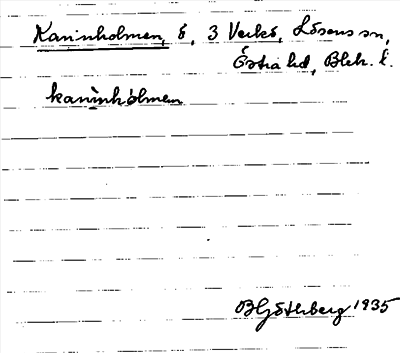 Kaninholmen, ö, 3 Verkö, Lösens sn,
Östra hd, Blek. l.
kanìnhòlmen
B Götherberg 1935